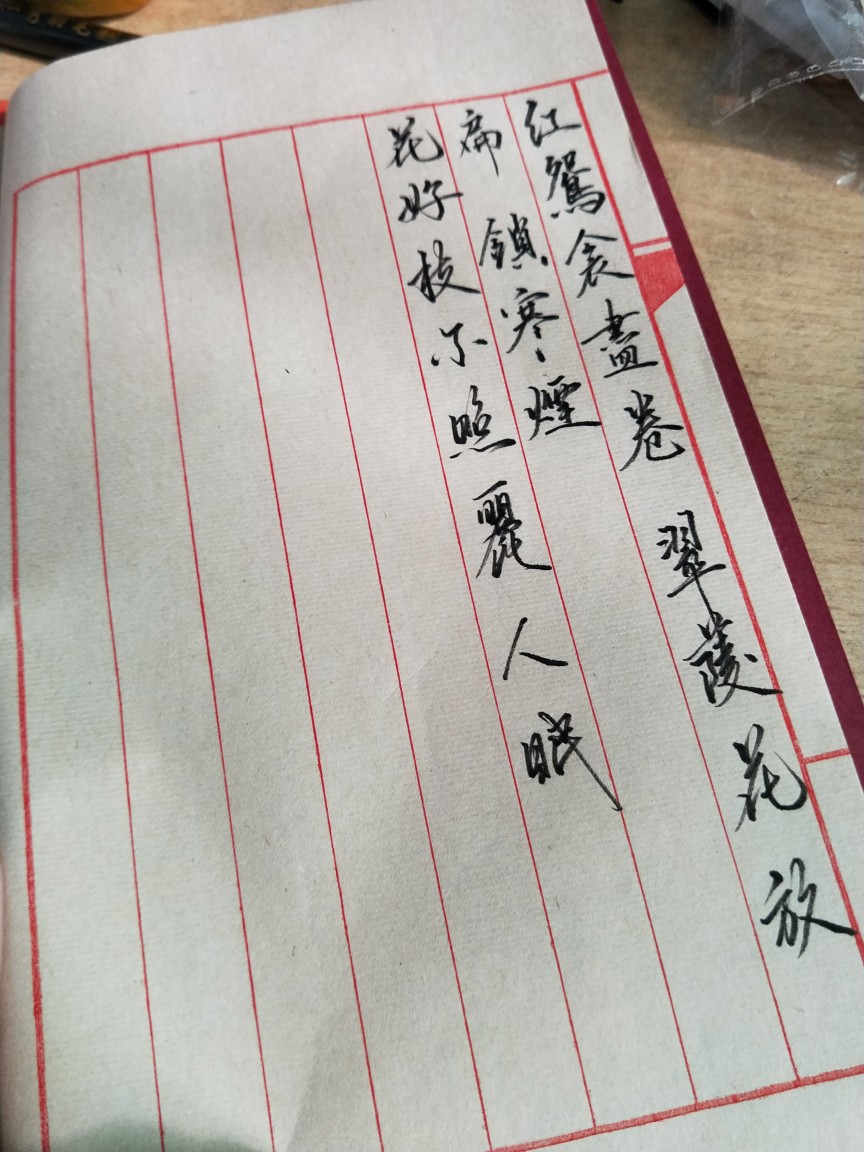 红鴛衾盡卷 翠菱花放
鎖寒煙
花好枝不照麗人眠